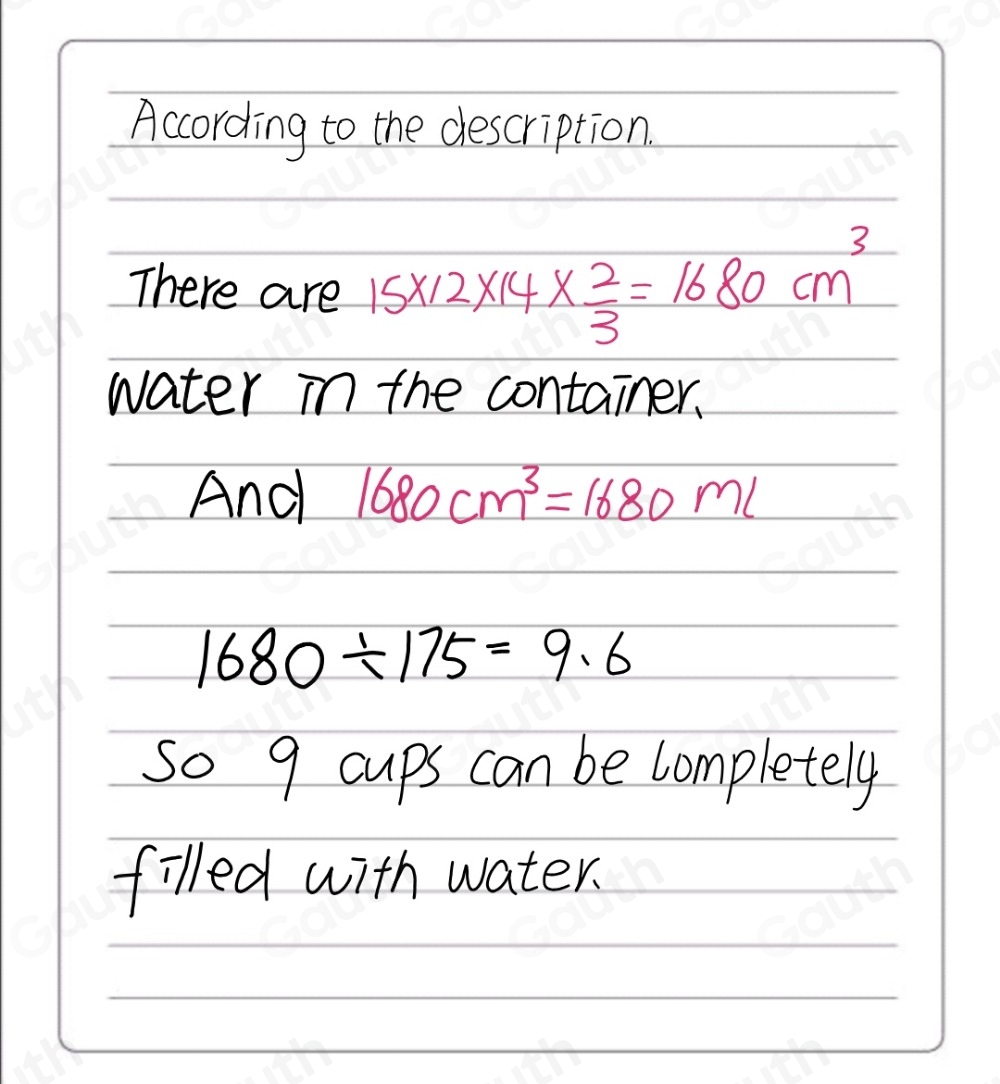 According to the description.
There are 15×12×14×2/3 = 1680 cm³
water in the container.
And 1680cm³=1680 ml
1680÷175= 9.6
So 9 cups can be completely
filled with water.
Gauth